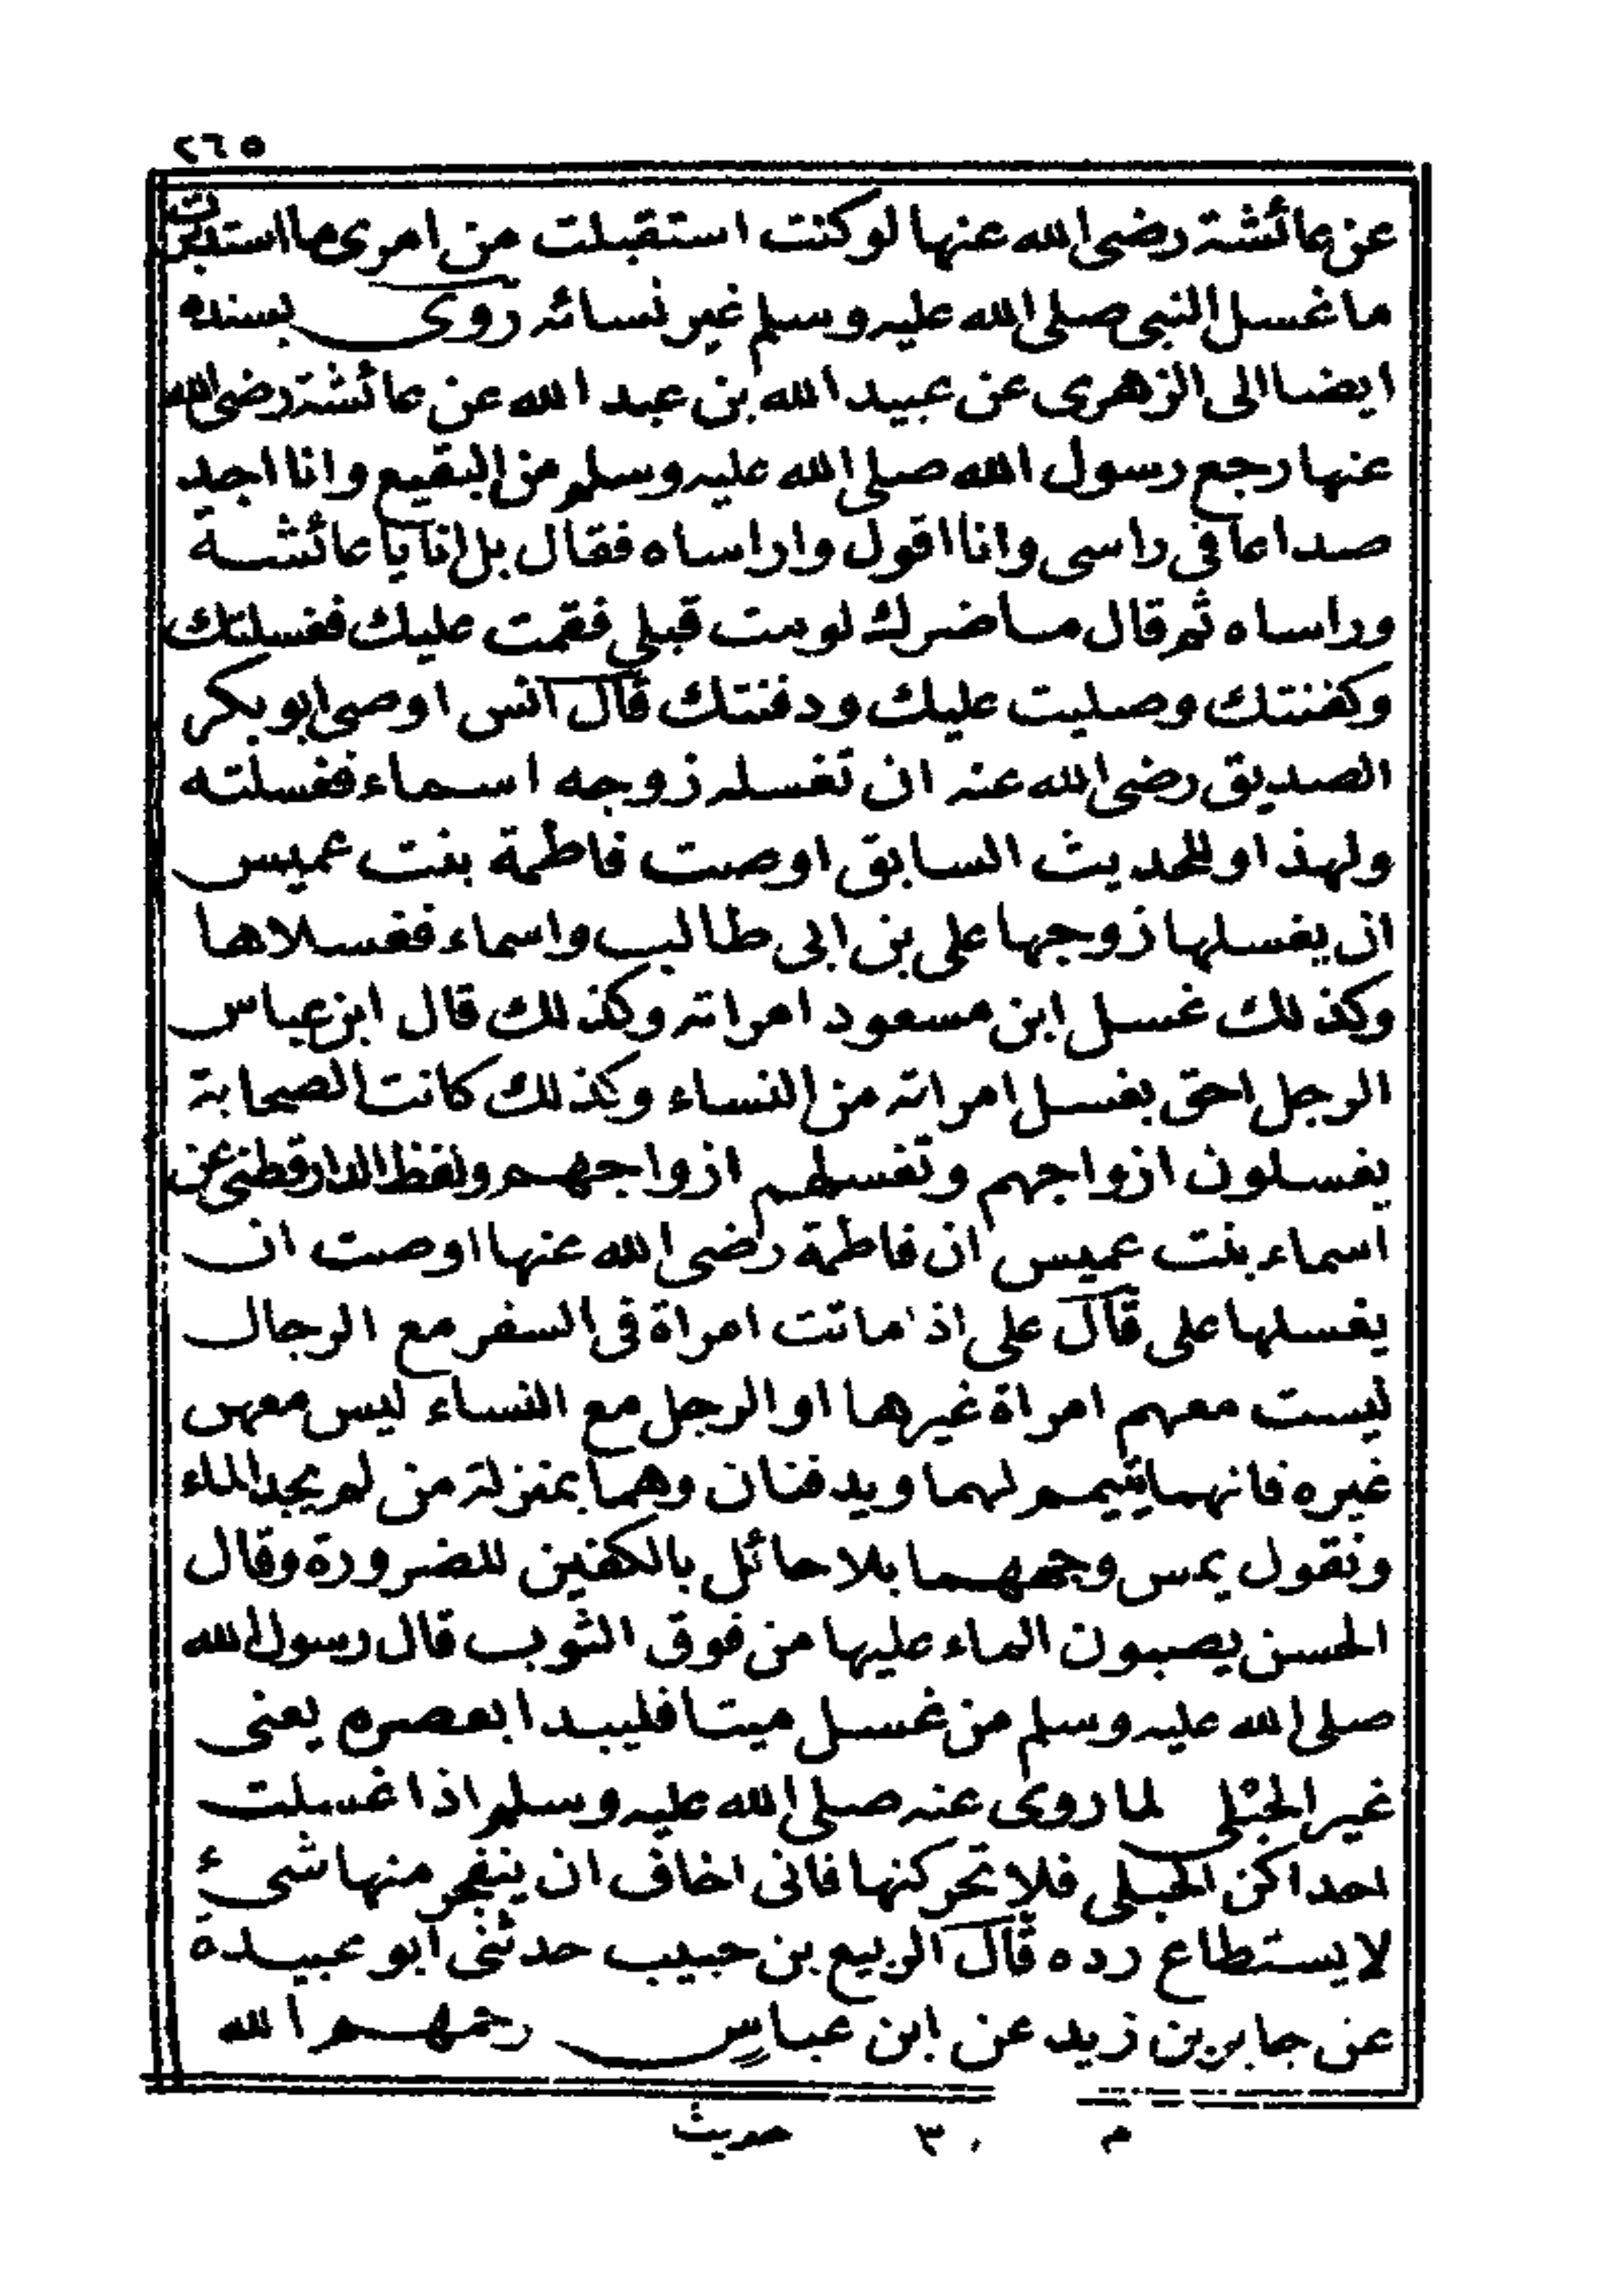 ٢٦٥
عن عائشة رضى الله عنها لو كنت استقبلت من امرى ما استدبرت
ما غسل النبى صلى الله عليه وسلم غير نسائه روى بسنده
ايضا الى الزهرى عن عبيد الله بن عبد الله عن عائشة رضى الله
عنها رجع رسول الله صلى الله عليه وسلم من البقيع وانا اجد
صداعا فى راسى وانا اقول واراساه فقال بل انا يا عائشة
وراساه ثم قال ما ضرك لو مت قبلى فقمت عليك فغسلتك
وكفنتك وصليت عليك ودفنتك قال انس اوصى ابو بكر
الصديق رضى الله عنه ان تغسله زوجه اسماء فغسلته
ولهذا وللحديث السابق اوصت فاطمة بنت عميس
ان يغسلها زوجها على بن ابى طالب واسماء فغسلاها
وكذلك غسل ابن مسعود امراته وكذلك قال ابن عباس
الرجل احق بغسل امراته من النساء وكذلك كانت الصحابة
يغسلون ازواجهم وتغسلهم ازواجهم ولفظ الدارقطنى عن
اسماء بنت عميس ان فاطمة رضى الله عنها اوصت ان
يغسلها على قال على اذا ماتت امراة فى السفر مع الرجال
ليست معهم امراة غيرها او الرجل مع النساء ليس معهن
غيره فانهما يتيمم لهما ويدفنان وهما بمنزلة من لم يجد الماء
ونقول يمس وجههما بلا حائل بالكفين للضرورة وقال
الحسن يصبون الماء عليها من فوق الثوب قال رسول الله
صلى الله عليه وسلم من غسل ميتا فليبدا بعصره يعنى
غير الحبلى لما روى عنه صلى الله عليه وسلم اذا غسلت
احداكن الحبلى فلا تحركنها فانى اخاف ان ينفجر منها شىء
لا يستطاع رده قال الربيع بن حبيب حدثنى ابو عبيدة
عن جابر بن زيد عن ابن عباس رحمهم الله
م ٣٠ حديث